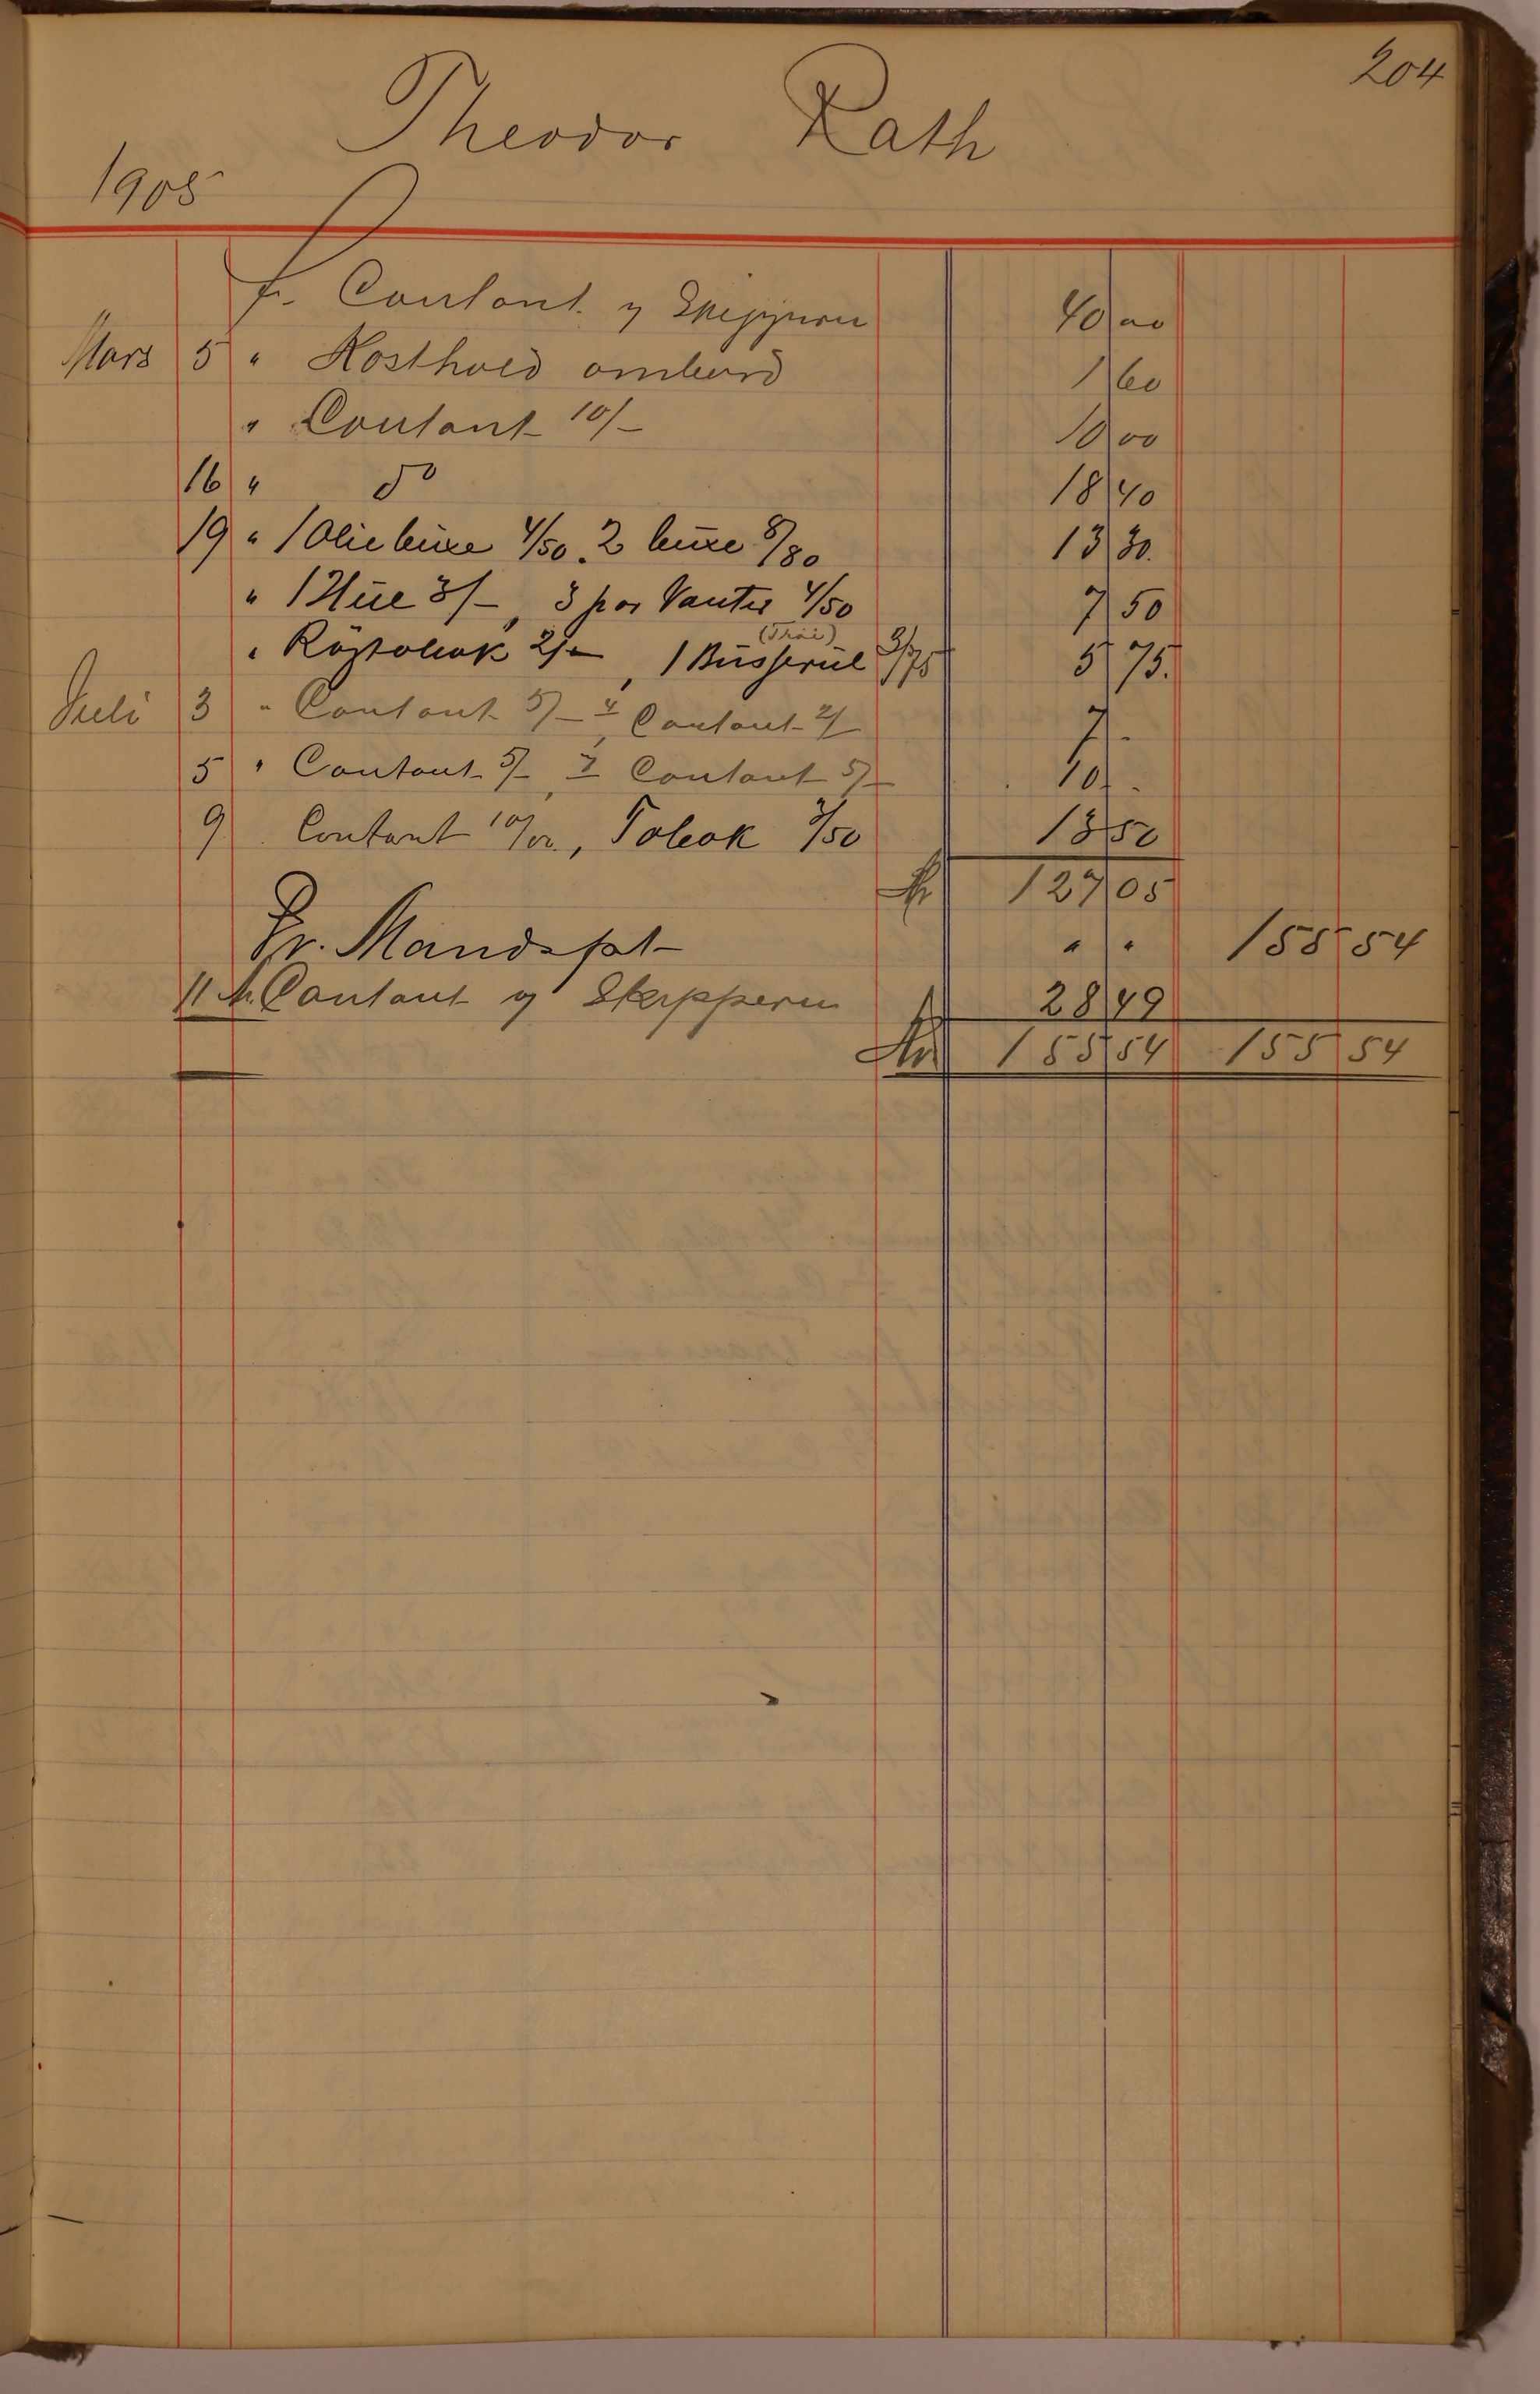 204
Theodor Rath
1905
fr. Contant y Skipperen 40 00
Mars 5 " Kosthold ombord 1 60
" Contant 10/- 10 00
16 " do 18 40
19 " 1 Oliebuxe 4/50. 2 buxe 8/80 13 30.
" 1 Hue 3/-, 3 par Vanter 4/50 7 50
" Röstobak 2/-, 1 Busserul (Trøie) 3/75 5 75.
Juli 3 " Contant 5/-, 4 Contant 2/- 7 -
5 " Contant 5/-, 7 Contant 5/- 10 -
9 Contant 10/00, Tobak 3/50 13 50
Kr 127 05
Pr. Mandspt " " 155 54
11 fr. Contant y Skipperen 28 49
Kr 155 54 155 54